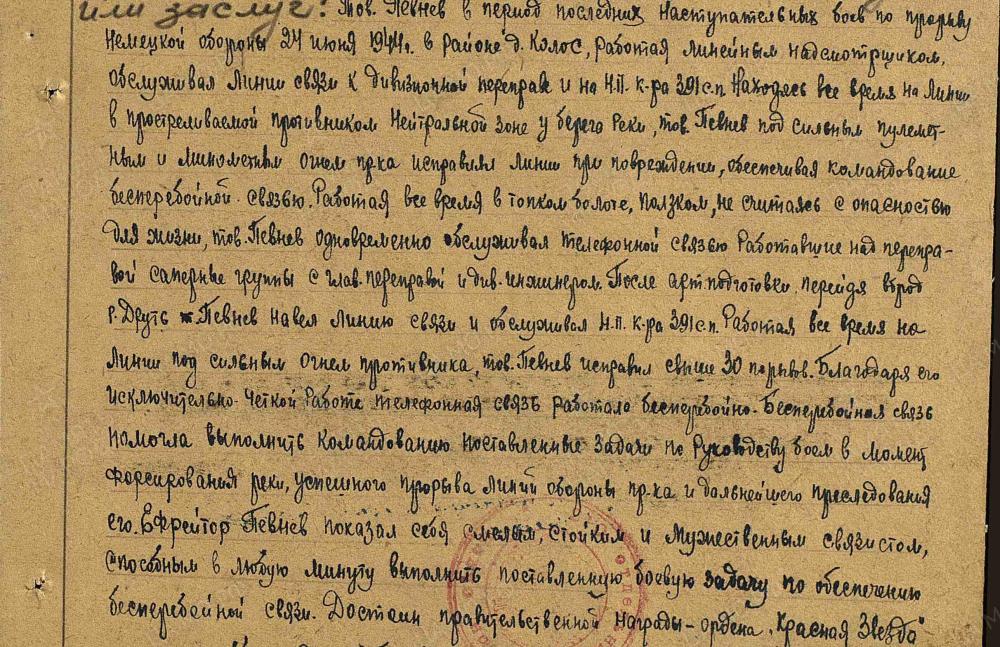 или заслуг: Тов. Певнев в период последних наступательных боев по прорыву
Немецкой обороны 24 июня 1944г. в районе д. Колос, работая линейным надсмотрщиком,
обслуживал линии связи к дивизионной переправе и на Н.П. к-ра 391 с.п. Находясь все время на линии
в простреливаемой противником Нейтральной зоне у берега реки, тов. Певнев под сильным пулемет-
ным и минометным огнем пр-ка исправлял линии при повреждении, обеспечивая командование
бесперебойной связью. Работая все время в топком болоте, ползком, не считаясь с опасностью
для жизни, тов. Певнев одновременно обслуживал телефонной связью работавшие над перепра-
вой саперные группы с глав. переправой и див. инженером. После артподготовки, перейдя вброд
р. Друть Певнев навел линию связи и обслуживал Н.П. к-ра 391 с.п. Работая все время на
линии под сильным огнем противника, тов. Певнев исправил свыше 30 порывов. Благодаря его
исключительно-четкой работе телефонная связь работала бесперебойно. Бесперебойная связь
помогла выполнить командованию поставленные задачи по руководству боем в момент
форсирования реки, успешного прорыва линий обороны пр-ка и дальнейшего преследования
его. Ефрейтор Певнев показал себя смелым, стойким и мужественным связистом,
способным в любую минуту выполнить поставленную боевую задачу по обеспечению
бесперебойной связи. Достоин правительственной награды - ордена „Красная Звезда"